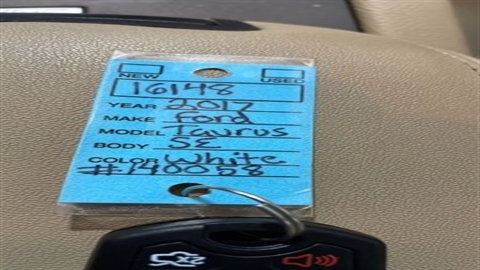 NEW USED
16148
YEAR 2017
MAKE Ford
MODEL Taurus
BODY SE
COLOR White
#140058